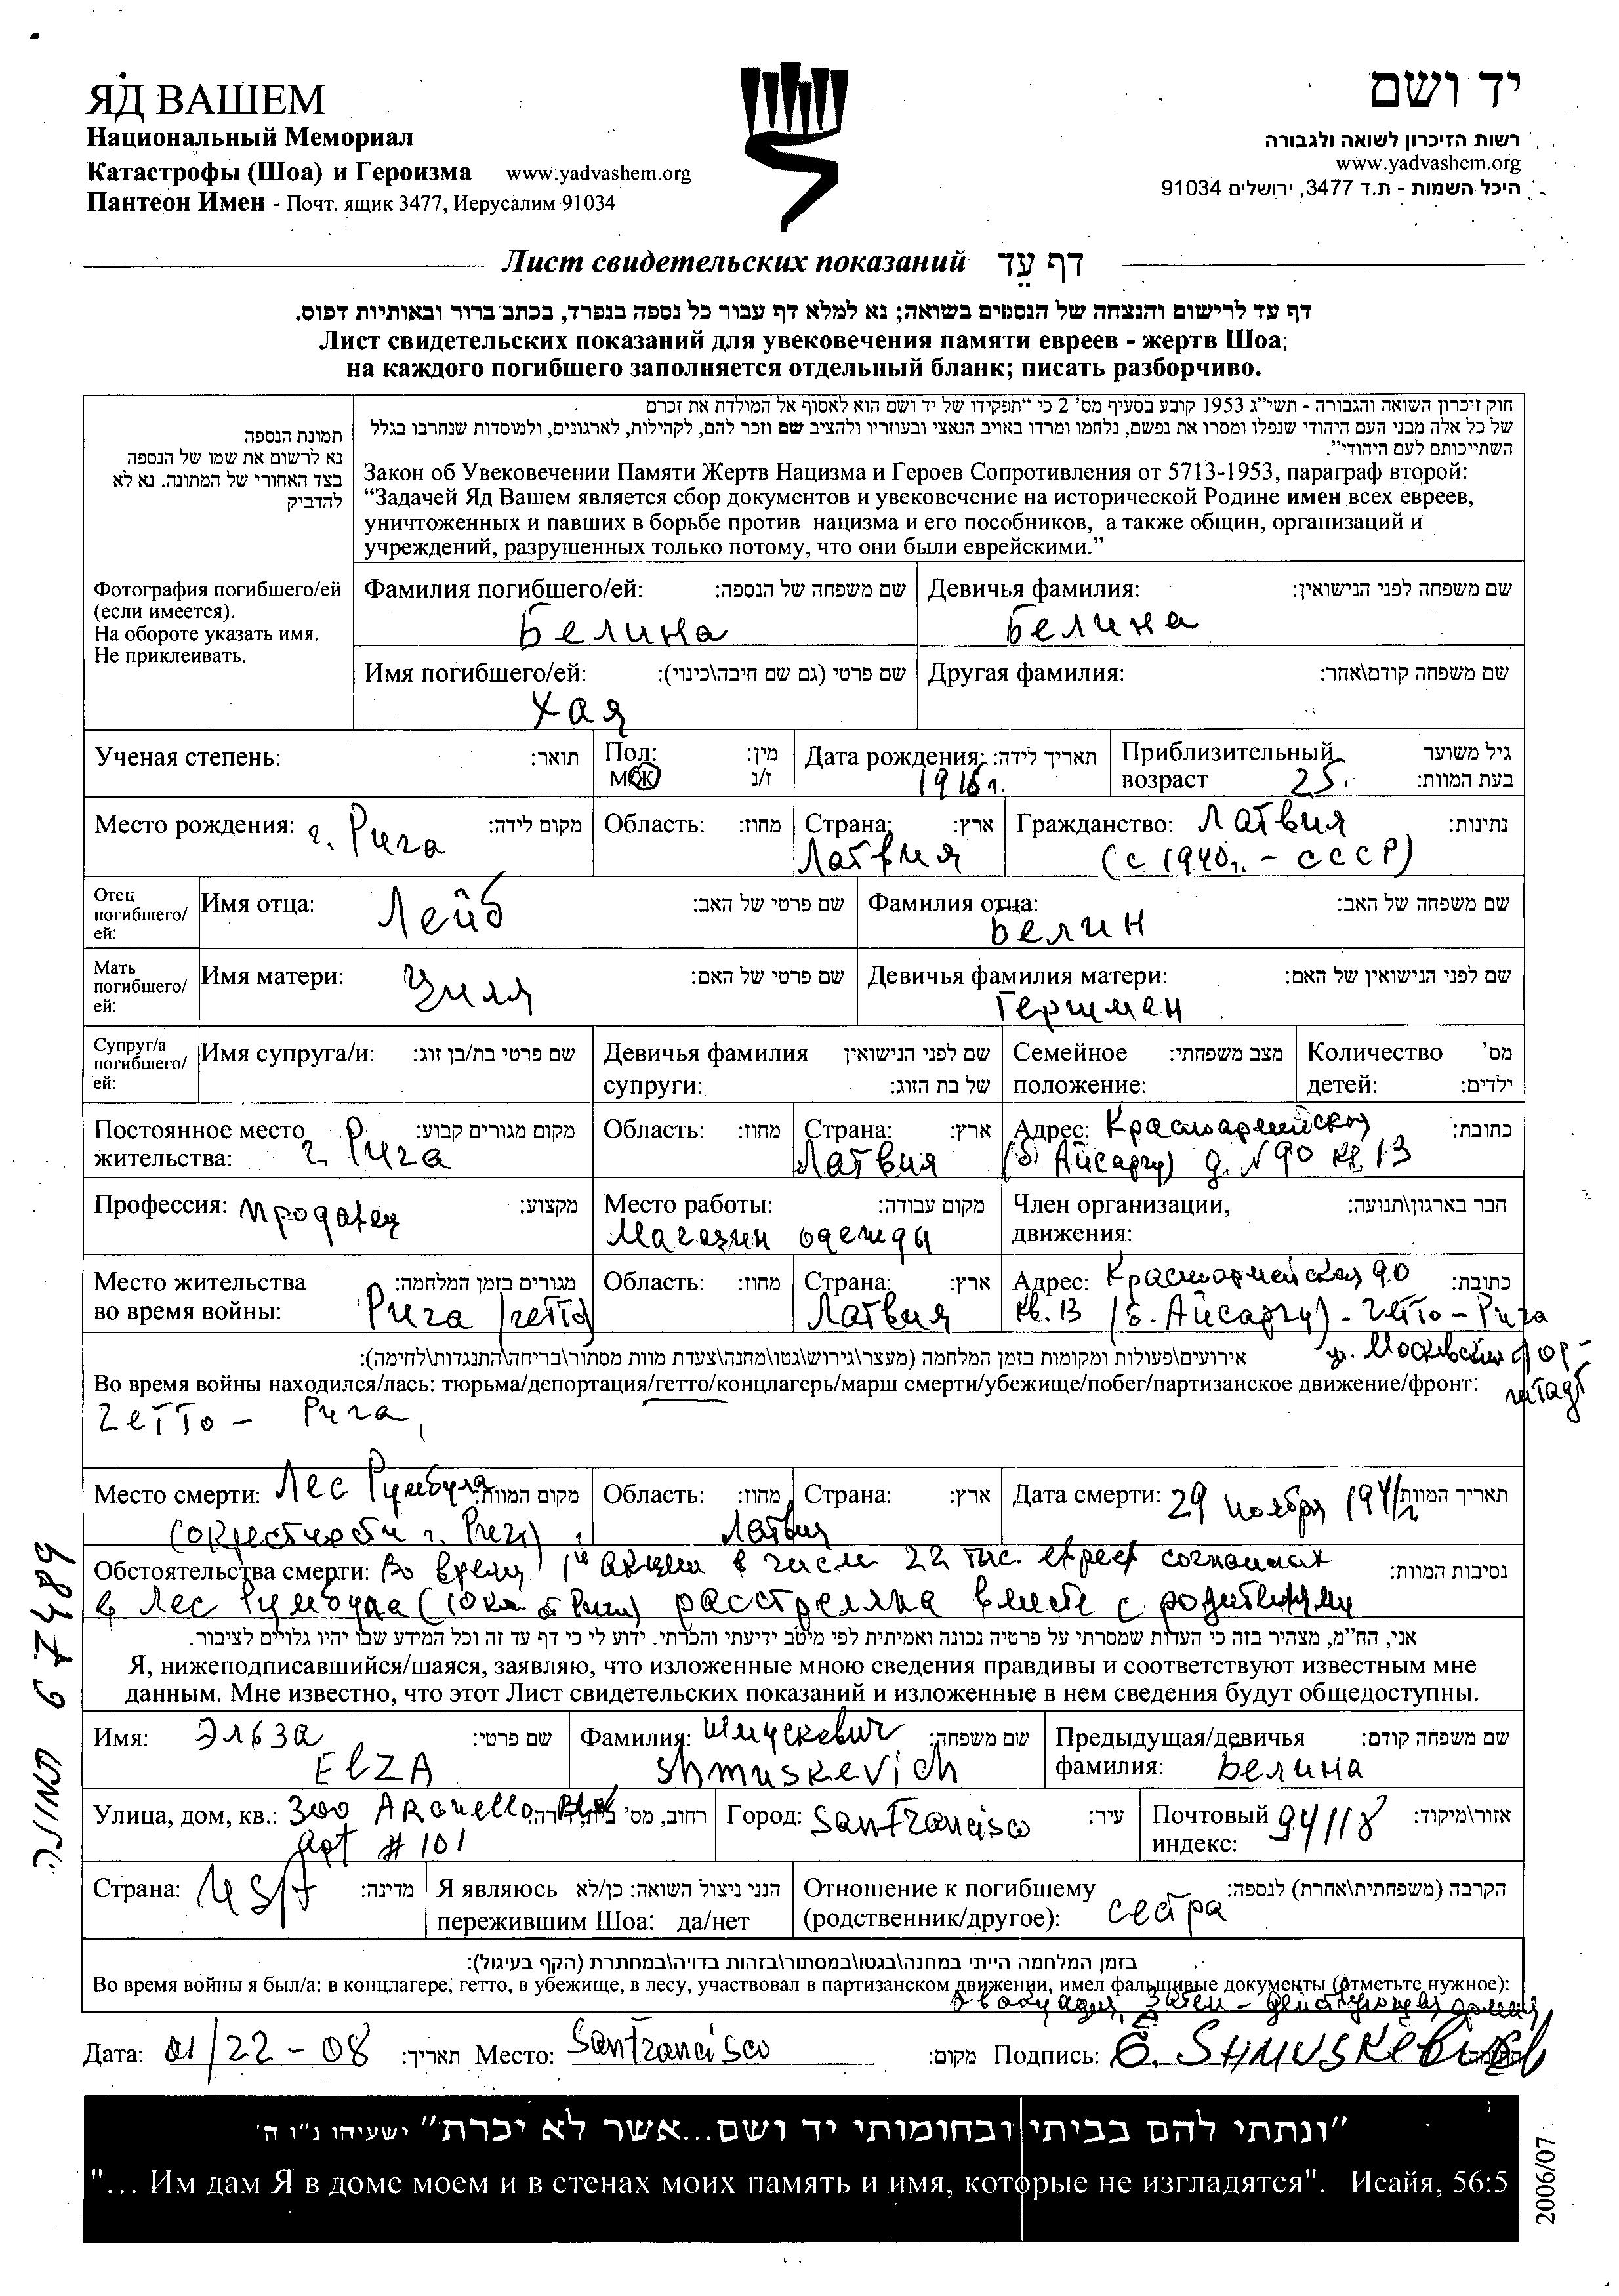 ЯД ВАШЕМ
Национальный Мемориал
Катастрофы (Шоа) и Героизма www.yadvashem.org
Пантеон Имен - Почт. ящик 3477, Иерусалим 91034
יד ושם
רשות הזיכרון לשואה ולגבורה
www.yadvashem.org
היכל השמות - ת.ד 3477, ירושלים 91034
Лист свидетельских показаний דף עֵד
דף עד לרישום והנצחה של הנספים בשואה; נא למלא דף עבור כל נספה בנפרד, בכתב ברור ובאותיות דפוס.
Лист свидетельских показаний для увековечения памяти евреев - жертв Шоа;
на каждого погибшего заполняется отдельный бланк; писать разборчиво.
תמונת הנספה
נא לרשום את שמו של הנספה
בצד האחורי של המתונה. נא לא
להדביק
Фотография погибшего/ей
(если имеется).
На обороте указать имя.
Не приклеивать.
חוק זיכרון השואה והגבורה - תשי״ג 1953 קובע בסעיף מס' 2 כי ״תפקידו של יד ושם הוא לאסוף אל המולדת את זכרם
של כל אלה מבני העם היהודי שנפלו ומסרו את נפשם, נלחמו ומרדו באויב הנאצי ובעוזריו ולהציב שם וזכר להם, לקהילות, לארגונים, ולמוסדות שנחרבו בגלל
השתייכותם לעם היהודי״.
Закон об Увековечении Памяти Жертв Нацизма и Героев Сопротивления от 5713-1953, параграф второй:
“Задачей Яд Вашем является сбор документов и увековечение на исторической Родине имен всех евреев,
уничтоженных и павших в борьбе против нацизма и его пособников, а также общин, организаций и
учреждений, разрушенных только потому, что они были еврейскими.”
Фамилия погибшего/ей: שם משפחה של הנספה: Девичья фамилия: שם משפחה לפני הנישואין:
Белина Белина
Имя погибшего/ей: שם פרטי (גם שם חיבה\כינוי): Другая фамилия: שם משפחה קודם\אחר:
Хая
Ученая степень: תואר: Пол: מין: Дата рождения: תאריך לידה: Приблизительный גיל משוער
м/ж ז/נ 1916 г. возраст 25 בעת המוות:
Место рождения: г. Рига מקום לידה: Область: מחוז: Страна: ארץ: Гражданство: Латвия נתינות:
Латвия (с 1940г. - СССР)
Отец погибшего/ей: Имя отца: Лейб שם פרטי של האב: Фамилия отца: שם משפחה של האב:
Белин
Мать погибшего/ей: Имя матери: Циля שם פרטי של האם: Девичья фамилия матери: שם לפני הנישואין של האם:
Гершман
Супруг/а погибшего/ей: Имя супруга/и: שם פרטי בת/בן זוג: Девичья фамилия שם לפני הנישואין Семейное מצב משפחתי: Количество מס'
супруги: של בת הזוג: положение: детей: ילדים:
Постоянное место מקום מגורים קבוע: Область: מחוז: Страна: ארץ: Адрес: Красноармейская כתובת:
жительства: г. Рига Латвия (б. Айсаргу) д. N 90 кв 13
Профессия: продавец מקצוע: Место работы: מקום עבודה: Член организации, חבר בארגון\תנועה:
Магазин одежды движения:
Место жительства מגורים בזמן המלחמה: Область: מחוז: Страна: ארץ: Адрес: Красноармейская 90 כתובת:
во время войны: Рига (гетто) Латвия кв. 13 (б. Айсаргу) - гетто - Рига
אירועים\פעולות ומקומות בזמן המלחמה (מעצר\גירוש\גטו\מחנה\צעדת מוות מסתור\בריחה\התנגדות\לחימה): Московский фор-
Во время войны находился/лась: тюрьма/депортация/гетто/концлагерь/марш смерти/убежище/побег/партизанское движение/фронт: штадт
Гетто - Рига,
Место смерти: Лес Румбула מקום המוות: Область: מחוז: Страна: ארץ: Дата смерти: 29 ноября 1941г תאריך המוות
(окрестности г. Риги) Латвия
Обстоятельства смерти: Во время 1ой акции в числе 22 тыс. евреев согнанных נסיבות המוות:
в Лес Румбула (10 км от Риги) расстреляна вместе с родителями
אני, הח״מ, מצהיר בזה כי העדות שמסרתי על פרטיה נכונה ואמיתית לפי מיטב ידיעתי והכרתי. ידוע לי כי דף עד זה וכל המידע שבו יהיו גלויים לציבור.
Я, нижеподписавшийся/шаяся, заявляю, что изложенные мною сведения правдивы и соответствуют известным мне
данным. Мне известно, что этот Лист свидетельских показаний и изложенные в нем сведения будут общедоступны.
Имя: Эльза שם פרטי: Фамилия: Шмускевич שם משפחה: Предыдущая/девичья שם משפחה קודם:
ELZA Shmuskevich фамилия: Белина
Улица, дом, кв.: 300 Arguello Blvd רחוב, מס' בית, דירה: Город: San Francisco עיר: Почтовый 94118 אזור\מיקוד:
Apt # 101 индекс:
Страна: USA מדינה: Я являюсь הנני ניצול השואה: כן/לא Отношение к погибшему הקרבה (משפחתית\אחרת) לנספה:
пережившим Шоа: да/нет (родственник/другое): сестра
בזמן המלחמה הייתי במחנה\בגטו\במסתור\בזהות בדויה\במחתרת (הקף בעיגול):
Во время войны я был/а: в концлагере, гетто, в убежище, в лесу, участвовал в партизанском движении, имел фальшивые документы (отметьте нужное):
Эвакуация, затем - действующая армия
Дата: 01/22-08 תאריך: Место: San Francisco מקום: Подпись: E. SHMUSKEVICH
״ונתתי להם בביתי ובחומותי יד ושם...אשר לא יכרת״ ישעיהו נ״ו ה'
"... Им дам Я в доме моем и в стенах моих память и имя, которые не изгладятся". Исайя, 56:5
2006/07
תמונה 67489